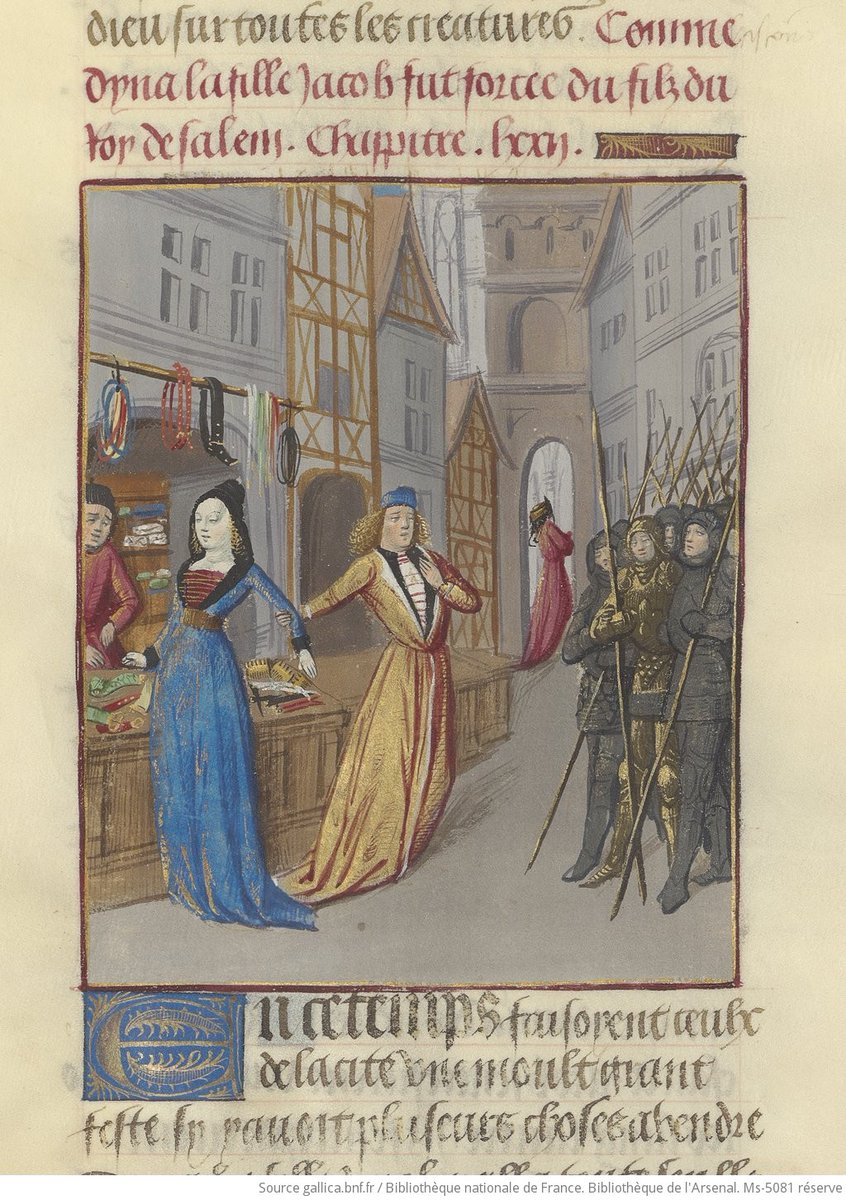 dieu sur toutes les creatures. Comme
dyna la fille Jacob fut forcee du filz du
Roy de salem. Chappitre. lxxij.
En ce temps faisoyent ceulx
de la cite vne moult grant
feste sy y auoit pluseurs choses a vendre
Source gallica.bnf.fr / Bibliothèque nationale de France. Bibliothèque de l'Arsenal. Ms-5081 réserve